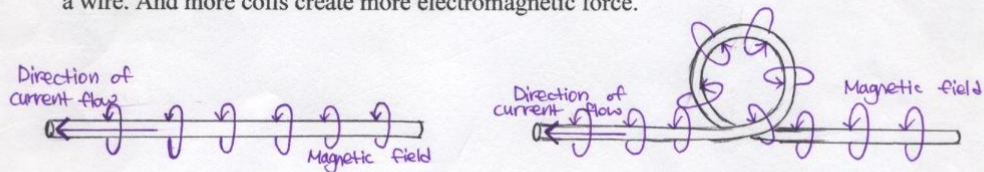 a wire. And more coils create more electromagnetic force.
Direction of
current flow
Magnetic field
Direction of
current flow
Magnetic field